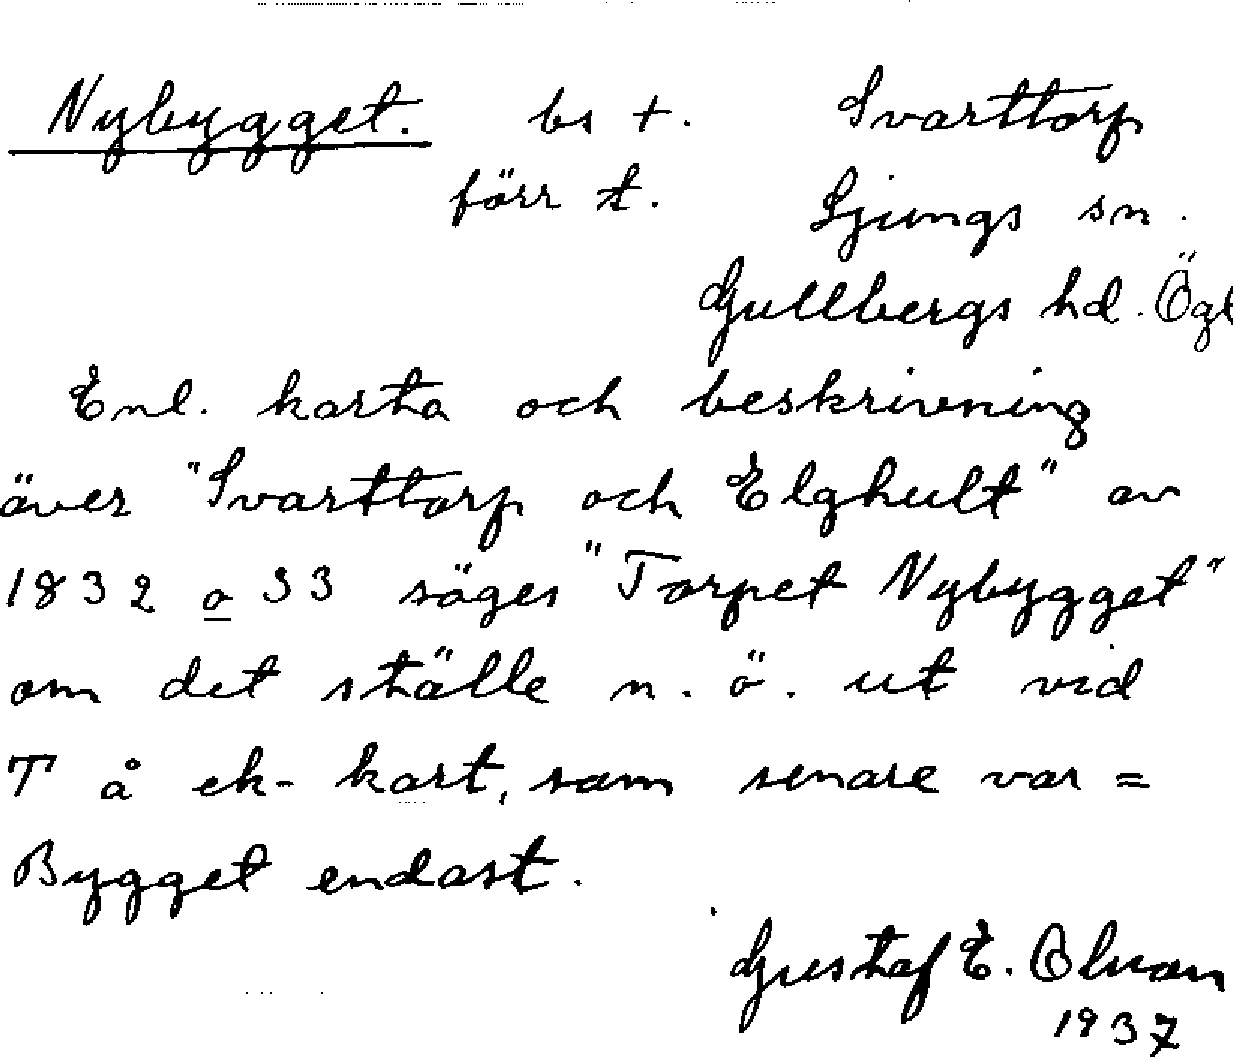 Nybygget. bs +. Svarttorp
förr t. Ljungs sn.
Gullbergs hd. Ögl
Enl. karta och beskrivning
över "Svarttorp och Elghult" av
1832 o 33 säges "Torpet Nybygget"
om det ställe n. ö. ut vid
T å ek-kart, som senare var =
Bygget endast.
Gustaf E. Olson
1937